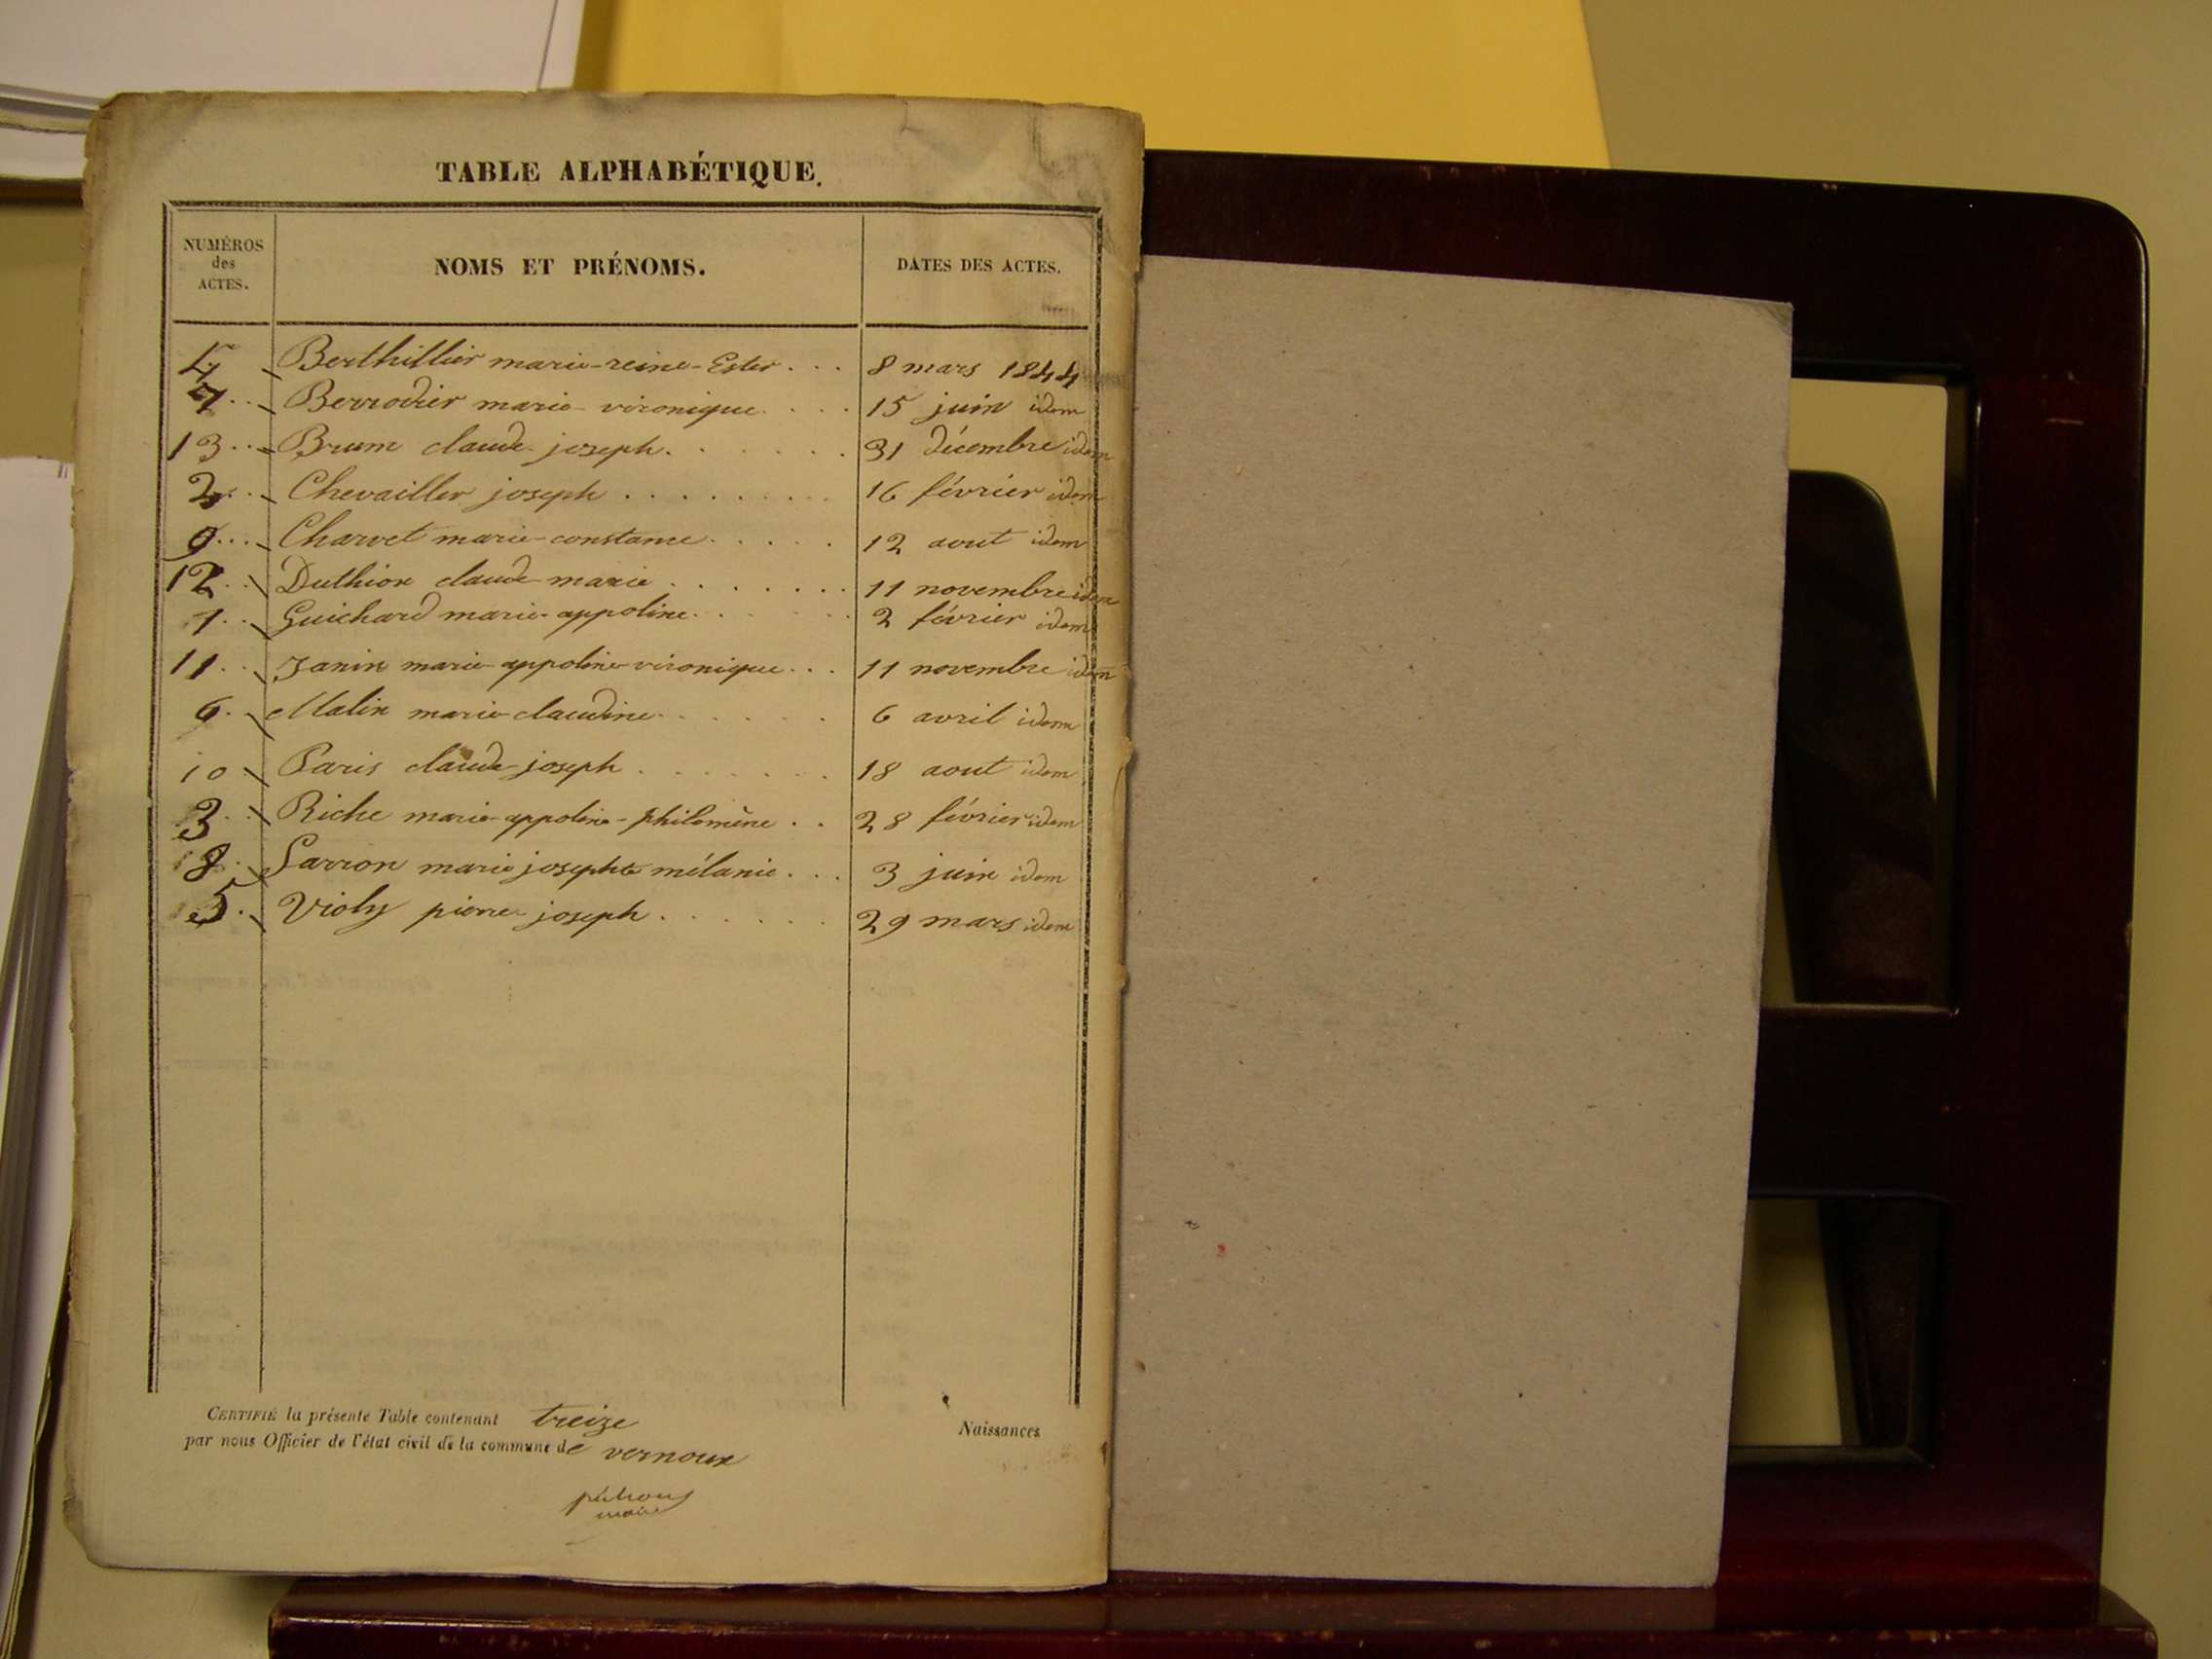 TABLE ALPHABÉTIQUE.
NUMÉROS des ACTES. NOMS ET PRÉNOMS. DATES DES ACTES.
4 Berthillier marie-reine-Ester . . . 8 mars 1844
7 . . Berrodier marie vironique . . . . 15 juin idem
13 . . . Brum claude joseph . . . . . . . 31 décembre idem
2 . . Chevailler joseph . . . . . . . . . 16 février idem
9 . . . Charvet marie-constance . . . . . 12 aout idem
12 . . Duthion claude marie . . . . . . . 11 novembre idem
1 . . Guichard marie-appoline . . . . . . 2 février idem
11 . . Janin marie appoline vironique . . . 11 novembre idem
6 . Malin marie claudine . . . . . . 6 avril idem
10 Paris claude joseph . . . . . . . 18 aout idem
3 . . Riche marie-appoline-philomène . . 28 février idem
8 . Sarron marie josephte mélanie . . . 3 juin idem
5 . Violy pierre joseph . . . . . . . 29 mars idem
CERTIFIÉ la présente Table contenant treize Naissances
par nous Officier de l'état civil de la commune de vernoux
maire